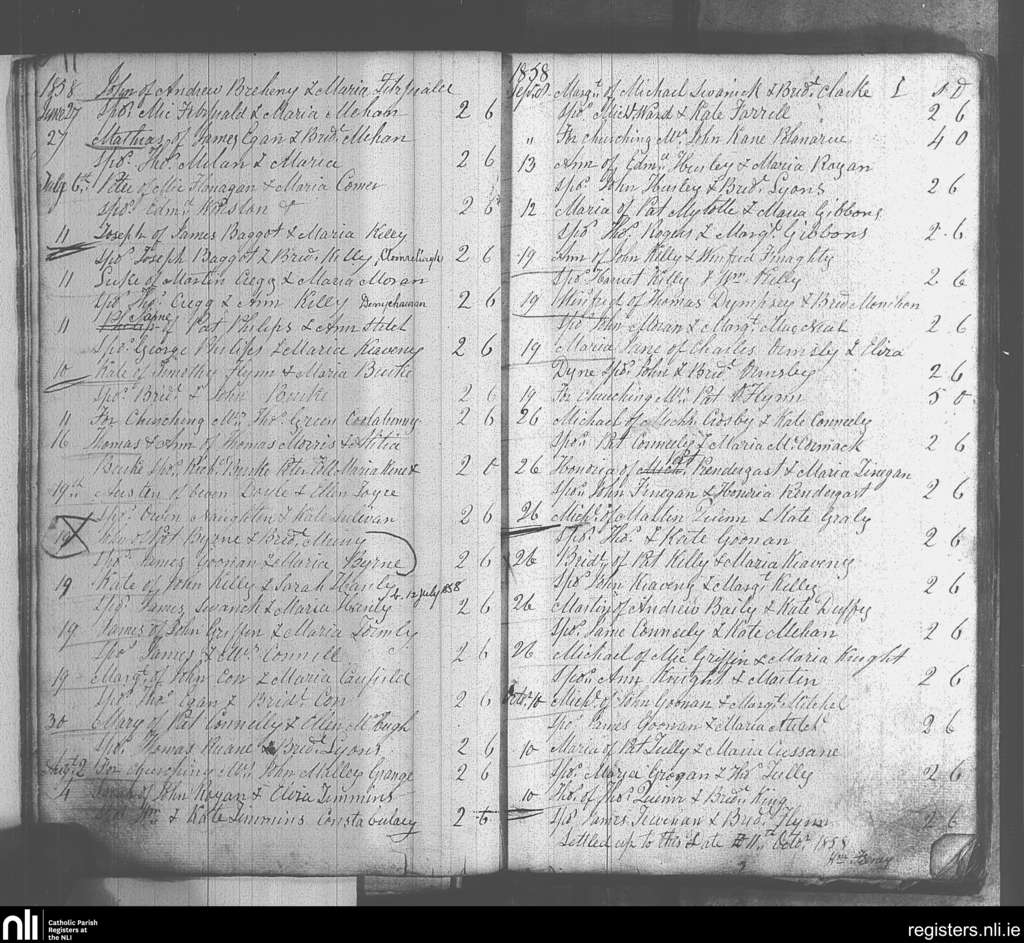 1858 John of Andrew Breheny & Maria Fitzpald
June 27 Spo. Mic Fitzpald & Maria Mehan 2 6
27 Mathias of James Egan & Brid.t Mehan
Spo. Tho.s Milan & Maria 2 6
July 6th Peter of Mic Flanagan & Maria Comer
Spo. Edm.d & 2 6
11 Joseph of James Baggot & Maria Kelly
Spo. Joseph Baggot & Brid. Kelly 2 6
11 Luke of Martin Cregg & Maria Moran
Spo Tho.s Cregg & Ann Kelly 2 6
11 Jane of Pat Philips & Ann
Spo. George Philips & Maria Keaveny 2 6
10 Kate of Timothy Flynn & Maria Burke
Spo. Brid.t & John Burke 2 6
11 For Churching Mrs Tho.s Green 2 6
16 Thomas & Ann of Thomas Morris & Litia
Burke Spo. Rich.d Burke Peter Maria 2 0
19th Austen of Doyle & Ellen Joyce
Spo. Owen Naughton & Kate Sulivan 2 6
19 of Pat Byrne & Brid.t
Spo. James Goonan & Maria Byrne 2 6
19 Kate of John Kelly & Sarah Hanly
b. 12 July 1858
Spo. James Swanick & Maria Hanly 2 6
19 James of John Griffin & Maria
Spo. James & Connell 2 6
19 Marg.t of John Con & Maria Caufield
Spo. Tho.s Egan & Brid.t Con 2 6
30 Mary of Pat Connelly & Ellen McHugh
Spo. Thomas Ruane & Brid. Lyons 2 6
Aug.t 2 For Churching Mrs John Mulley Grange 2 6
4 of John Rogan & Eliza Timmins
Spo. Wm & Kate Timmins Constabulary 2 6
1858
Sept.r Marg.t of Michael Swanick & Brid.t Clarke £ S D
Spo. Mic.l Ward & Kate Farrell 2 6
" For churching Mrs John Kane 4 0
13 Ann of Edm.d Hurley & Maria Rogan
Spo. John Hurley & Brid. Lyons 2 6
12 Maria of Pat & Maria Gibbons
Spo. Tho.s Rogers & Marg.t Gibbons 2 6
19 Ann of John Kelly & Winifred Finaghty
Spo. Kelly & Wm Kelly 2 6
19 Winifred of Thomas Dymphsey & Brid. Monahon
Spo. John Moran & Marg.t 2 6
19 Maria Jane of Charles Ormsby & Eliza
Dyne Spo. John & Brid.t Ormsby 2 6
19 For churching Mrs Pat Flynn 5 0
26 Michael of Mich.l Crosby & Kate Conneely
Spo. Pat Conneely & Maria McCormack 2 6
26 Honoria of Pat Prendergast & Maria Finegan
Spo. John Finegan & Honoria Prendergast 2 6
26 Mich.l of Martin Quinn & Kate Graly
Spo. Tho.s & Kate Goonan 2 6
26 Brid.t of Pat Kelly & Maria Keaveny
Spo. John Keaveny & Marg.t Kelly 2 6
26 Martin of Andrew Baily & Kate Duffy
Spo. Jame Conneely & Kate Mehan 2 6
26 Michael of Mic Griffin & Maria Knight
Spo. Ann Knight & Martin 2 6
Octr. 10 Mich.l of John Goonan & Marg.t Mitchel
Spo. James Goonan & Maria Mitchel 2 6
10 Maria of Pat Tully & Maria Cussane
Spo. Maria Grogan & Tho.s Tully 2 6
10 Tho.s of Tho.s Quinn & Brid.t King
Spo. James & Brid. Flynn 2 6
Settled up to this date 11th Octo.r 1858
nli
Catholic Parish
Registers at
the NLI
registers.nli.ie